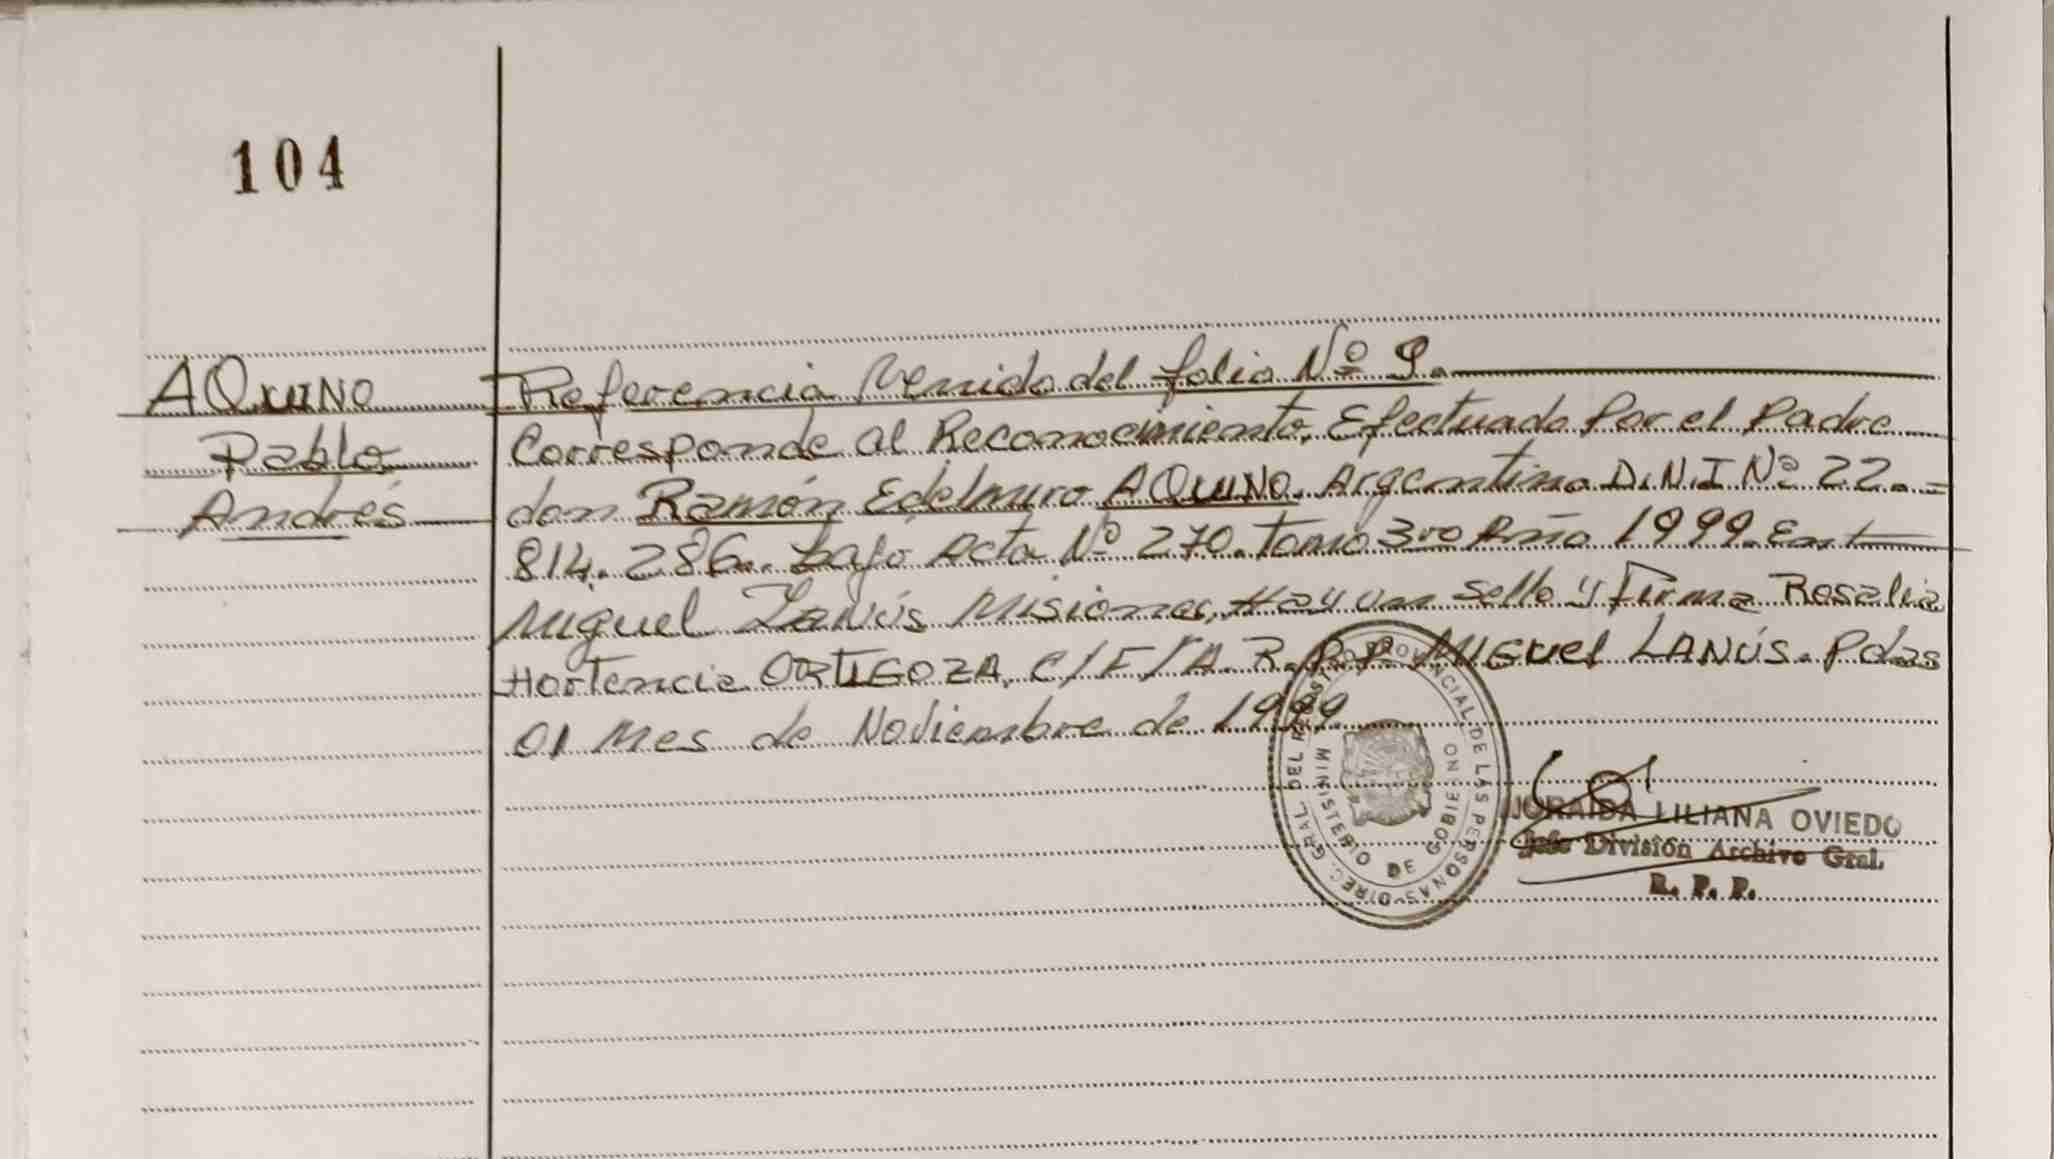 104
AQUINO
Pablo
Andrés
Referencia Venido del folio Nº 9.
Corresponde al Reconocimiento, Efectuado por el Padre
don Ramón Edelmiro AQUINO. Argentino D.N.I Nº 22.=
814.286. bajo Acta Nº 270. tomo 3ro Año 1999.
Miguel Lanús Misiones, Hay un sello y firma Rosalia
Hortencia ORTIGOZA, C/F/A. R.P.P. MIGUEL LANÚS. Pdas
01 Mes de Noviembre de 1999
DIREC. GRAL. DEL REGISTRO PROVINCIAL DE LAS PERSONAS
MINISTERIO DE GOBIERNO
LILIANA OVIEDO
Jefe División Archivo Gral.
R. P. P.